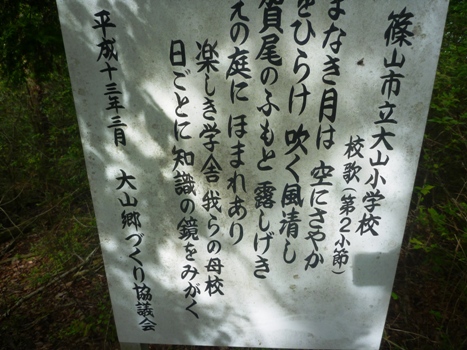 篠山市立大山小学校
校歌（第２小節）
まなき月は 空にさやか
をひらけ 吹く風清し
賀尾のふもと 露しげき
の庭に ほまれあり
楽しき学舎 我らの母校
日ごとに知識の鏡をみがく
平成十三年三月 大山郷づくり協議会